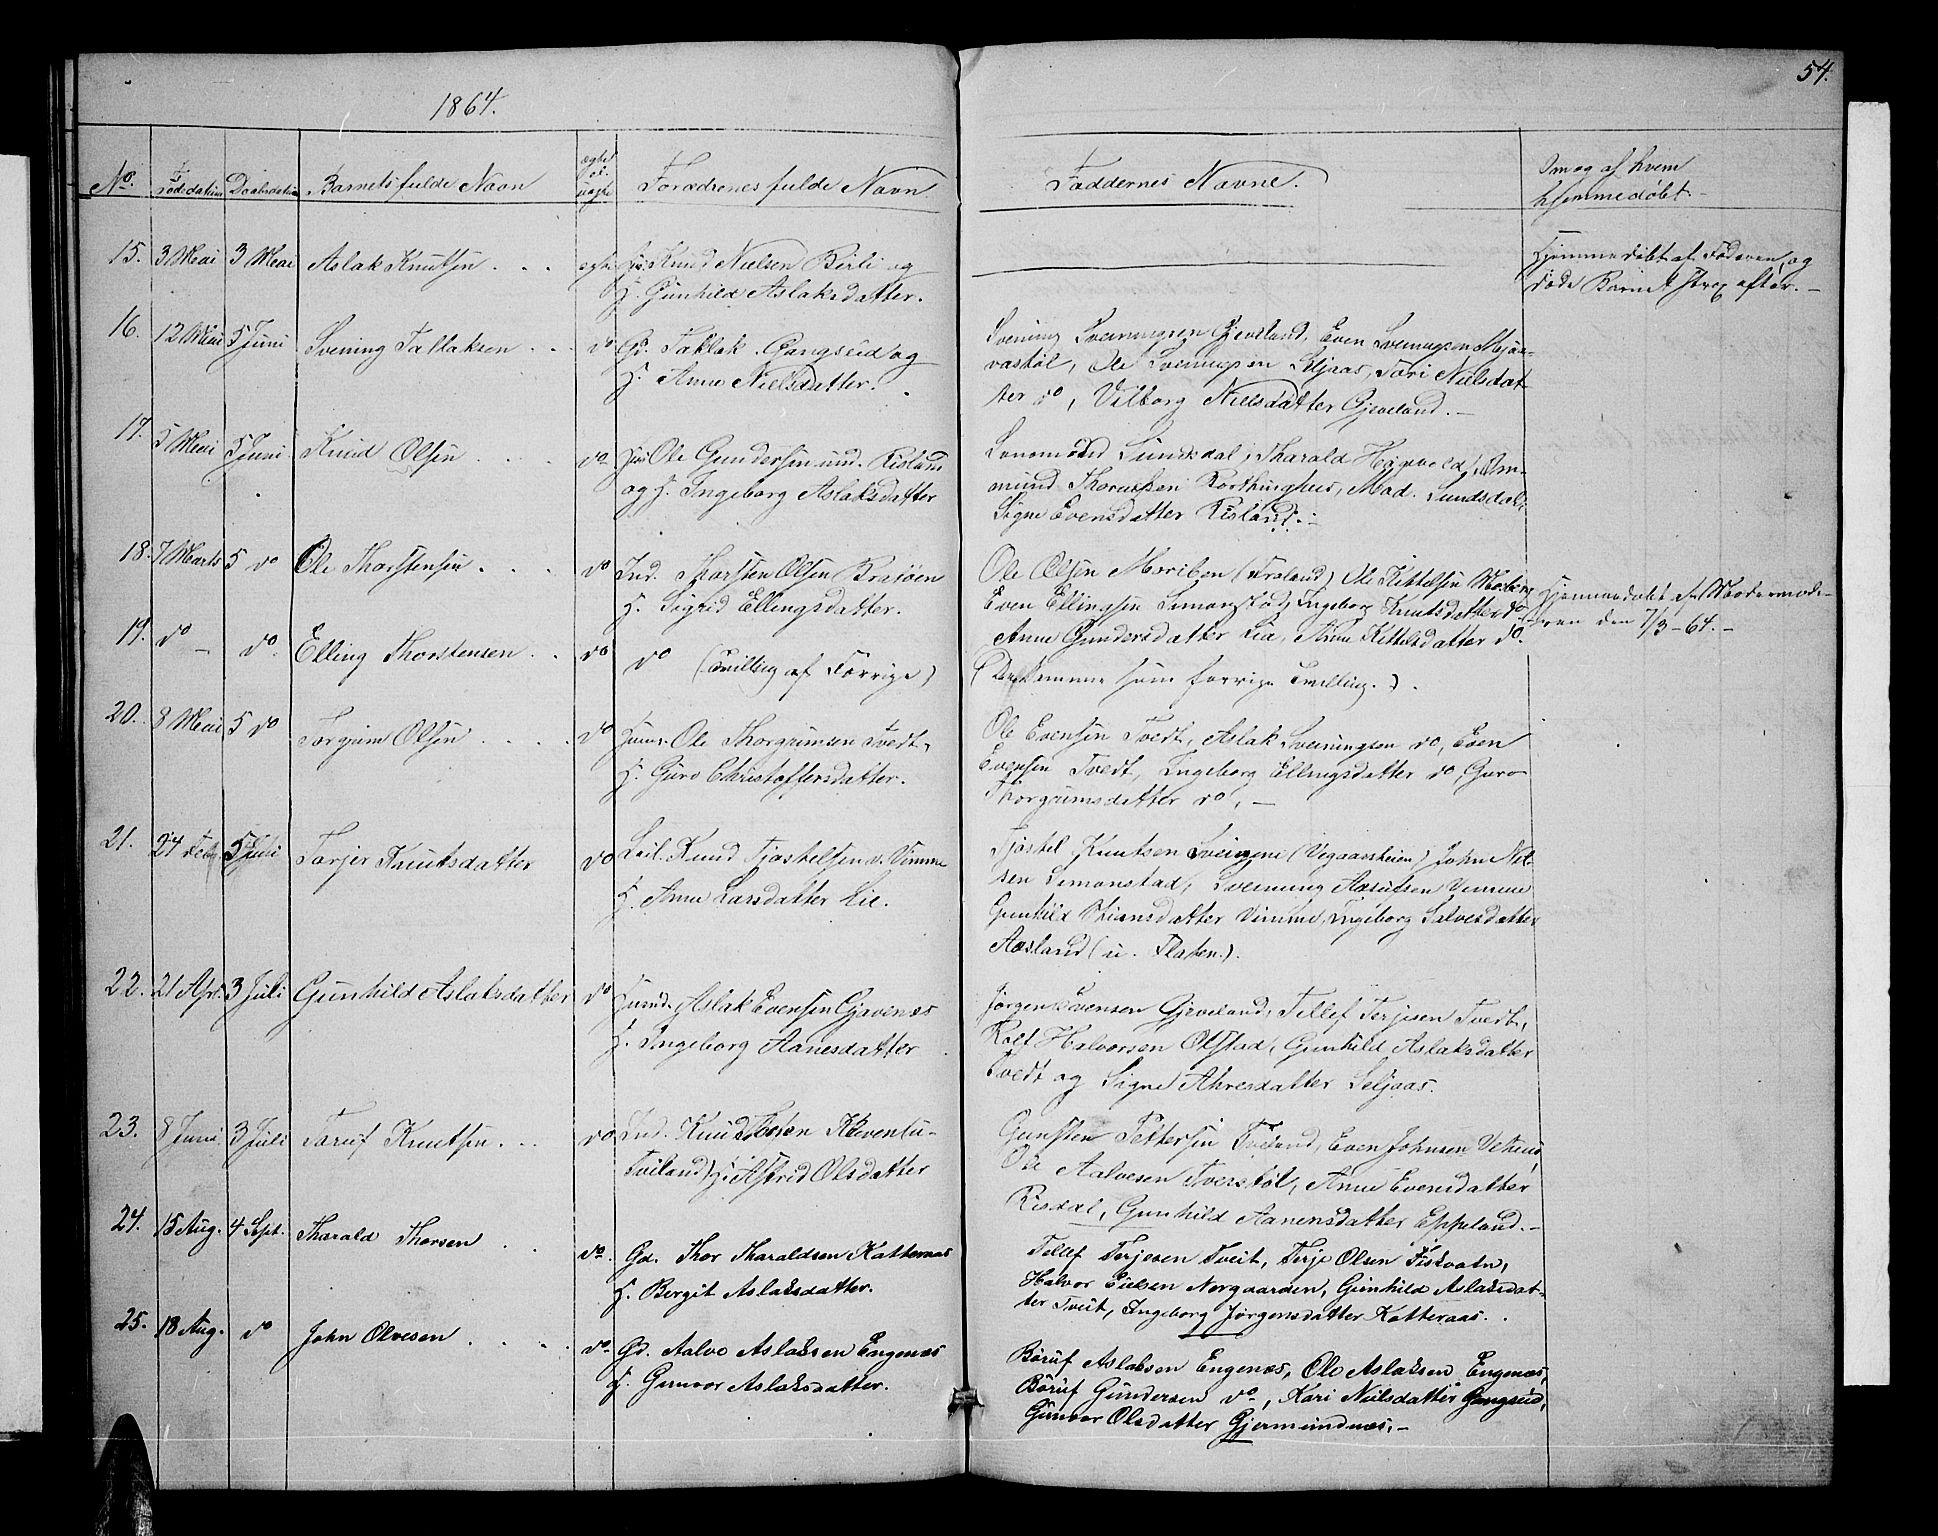 54.
1864.
No. Fødsdatum Daabsdatum Barnets fulde Navn ægte el. uægte Forældrenes fulde Navn
Faddernes Navne.
Om og af hvem
hjemmedøbt.
15. 3 Mai 3 Mai Aslak Knutsen ægte Knud Nielsen Birli og
H. Gunhild Aslaksdatter.
Hjemmedøbt af Faderen, og
døde Barnet strax efter.
16. 12 Mai 5 Juni Svening Tallaksen do Gd. Taklak Gangseid og
H. Anne Nielsdatter.
Svening Sveinungsen Gjeveland, Even Sveinungsen Mjaa-
vastøl, Ole Sveinungsen Seljaas, Tari Nielsdat-
ter do, Vilborg Nielsdatter Gjeveland.
17. 5 Mai 5 Juni Knud Olsen do Ole Gundersen und. Risland
og H. Ingeborg Aslaksdatter
Lensmand Sundsdal, Tharald Høgevold, Om-
mund Mad. Sundsdal,
Signe Evensdatter Risland.
18. 7 Marts 5 do Ole Thorstensen do Ind. Thorsten Olsen
H. Sigrid Ellingsdatter.
Ole Olsen (Froland) Ole Kittelsen
Even Ellingsen Simonstad, Ingeborg Knutsdatter do
Anne Gundersdatter Lia, Anne Kittelsdatter do.
Hjemmedøbt af Modermode-
ren den 7/3-64.
19. do do. Elling Thorstensen do do (Tvilling af Forrige)
(De samme som forrige Tvilling.)
20. 8 Mai 5 do Torgrim Olsen do Ole Thorgrimsen Tvedt,
H. Guro Christoffersdatter.
Ole Evensen Tvedt, Aslak Sveinungsen do, Even
Evensen Tvedt, Ingeborg Ellingsdatter do, Guro
Thorgrimsdatter do.
21. 24 Feb. 3 Juli Torjer Knutsdatter do Leil. Knud Tjøstelsen Vimme
H. Anne Larsdatter Lie.
Tjøstel Knutsen (Vegaarsheien) John Niel-
sen Simonstad, Sveinung Vimme
Gunhild Vimme, Ingeborg Salvesdatter
Aasland (u. Flaten.).
22. 21 Apr. 3 Juli Gunhild Aslaksdatter do Aslak Evensen Gjavenæs
H. Ingeborg Aanesdatter
Jørgen Evensen Gjeveland, Tellef Terjesen Tvedt,
Rolf Halvorsen Olstad, Gunhild Aslaksdatter
Tvedt og Signe Seljaas.
23. 8 Juni 3 Juli Taruf Knutsen do Ind. Knud
Tviland H. Astrid Olsdatter
Gunsten Pettersen Tveland, Even Johnsen
Ole Aalvesen Anne Evensdatter
Risdal, Gunhild Aanensdatter Eppeland.
24. 15 Aug. 4 Sept. Tharald Thorsen do. Gd. Thor Tharaldsen Katteraas
H. Bergit Aslaksdatter.
Tellef Terjesen Tveit, Terje Olsen Fiskvatn,
Halvor Eielsen Norgaarden, Gunhild Aslaksdat-
ter Tveit, Ingeborg Jørgensdatter Katteraas.
25. 18 Aug. do John Olvesen do. Gd. Aalvo Aslaksen Engenæs
H. Gunvor Aslaksdatter.
Børuf Aslaksen Engenæs, Ole Aslaksen Engenæs,
Børuf Gundersen do, Kari Nielsdatter Gangseid,
Gunvor Olsdatter Gjermundnæs.